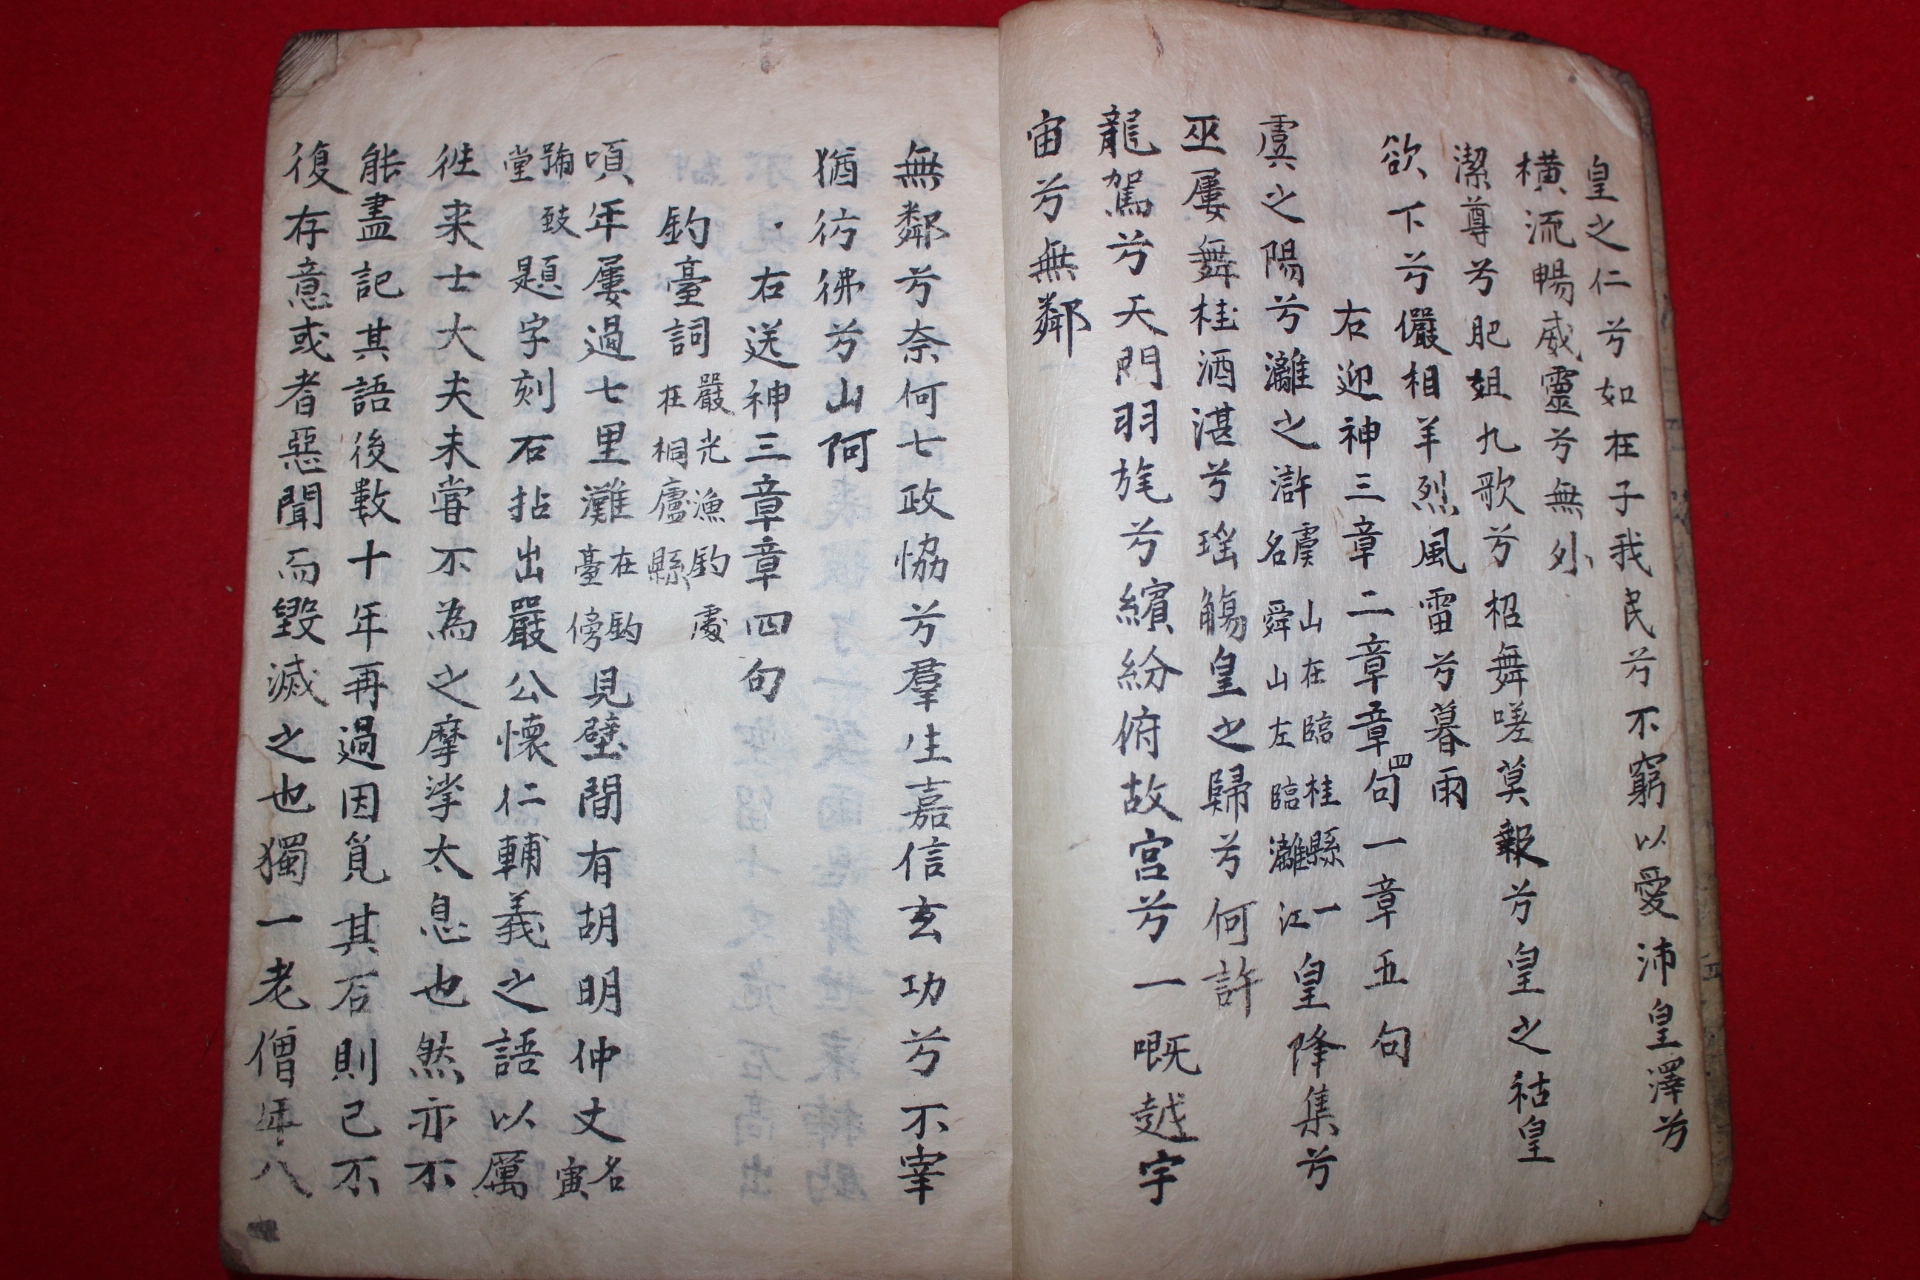 皇之仁兮如在子我民兮不窮以愛沛皇澤兮
橫流暢威靈兮無外
潔尊兮肥俎九歌兮招舞嗟莫報兮皇之祜皇
欲下兮儼相羊烈風雷兮暮雨
右迎神三章二章章四句一章五句
虞之陽兮灕之滸虞山在臨桂縣一名舜山左臨灕江皇降集兮
巫屢舞桂酒湛兮瑤觴皇之歸兮何許
龍駕兮天門羽旄兮繽紛俯故宮兮一嘅越宇
宙兮無鄰
無鄰兮奈何七政協兮羣生嘉信玄功兮不宰
猶彷彿兮山阿
右送神三章章四句
釣臺詞嚴光漁釣處在桐廬縣
頃年屢過七里灘在釣臺傍見壁間有胡明仲丈名寅
號致堂題字刻石拈出嚴公懷仁輔義之語以厲
徃来士大夫未嘗不為之摩挲太息也然亦不
能盡記其語後數十年再過因筧其石則已不
復存意或者惡聞而毀滅之也獨一老僧年八